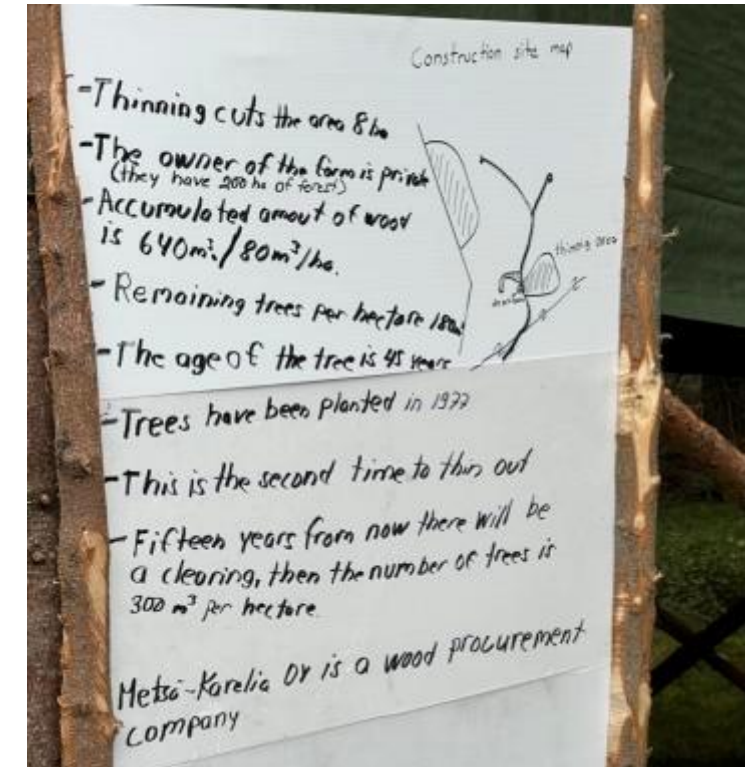 Construction site map
-Thinning cuts the area 8ha
-The owner of the farm is private
(they have 200 ha of forest)
-Accumulated amout of wood
is 640m³/80m³/ha.
-Remaining trees per hectare
-The age of the tree is 45 years
thinning area
-Trees have been planted in 1977
-This is the second time to thin out
-Fifteen years from now there will be
a clearing, then the number of trees is
300 m³ per hectare
Metsä-Karelia Oy is a wood procurement
company